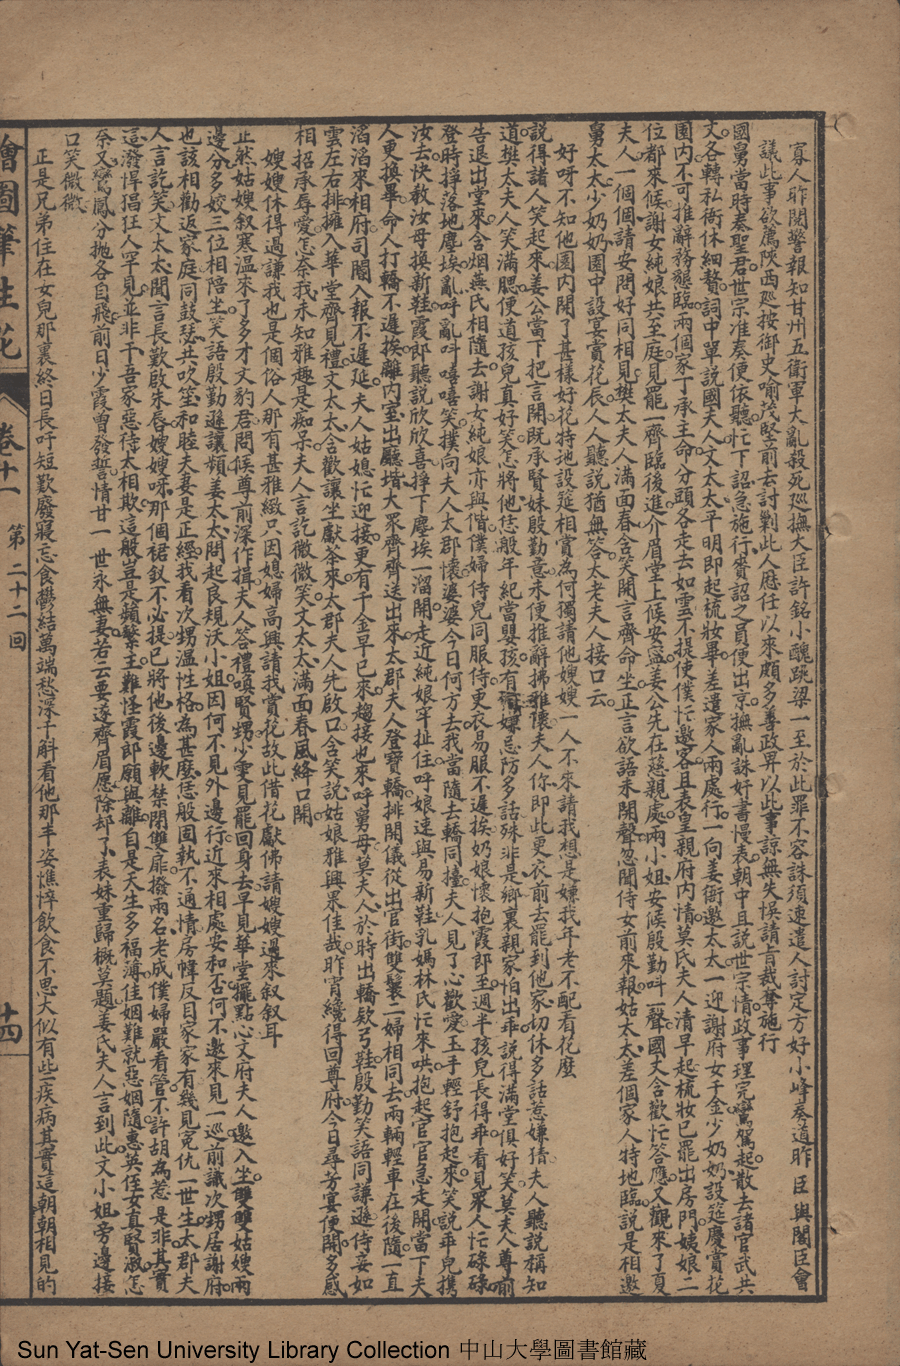 寡人昨閱警報知甘州五衛軍大亂殺死廵撫大臣許銘小醜跳梁一至於此罪不容誅須速遣人討定方好小峰奏道昨臣與閣臣會
議此事欲薦陝西廵按御史喻茂堅前去討剿此人歷任以來頗多善政畀以此事諒無失悞請旨裁奪施行
國舅當時奏聖君世宗准奏便依聽忙下詔急施行賚詔之員便出京撫亂誅奸書慢表朝中且說世宗情政事理完鸞駕起散去諸官武共
文各轉私衙休細贅詞中單説國夫人文太太平明即起梳妝畢差遣家人兩處行一向姜衙邀太太一迎謝府女千金少奶奶設筵慶賞花
園內不可推辭務懇臨兩個家丁承主命分頭各走去如雲不提使僕忙邀客且表皇親府內情莫氏夫人清早起梳妝已罷出房門姨娘二
位都來候謝女純娘共至庭見罷一齊臨後進介眉堂上候安寧姜公先在慈親處兩小姐安候殷勤呌一聲國丈含歡忙答應又觀來了夏
夫人一個個請安問好同相見樊太夫人滿面春含笑開言齊命坐正言欲語未開聲忽聞侍女前來報姑太太差個家人特地臨説是相邀
舅太太少奶奶園中設宴賞花辰人人聽說猶無答太老夫人接口云
好呀不知他園內開了甚樣好花特地設筵相賞為何獨請他嫂嫂一人不來請我想是嫌我年老不配看花麼
說得諸人笑起來姜公當下把言開既承賢妹殷勤意未便推辭拂雅懷夫人你即此更衣前去罷到他家切休多話惹嫌猜夫人聽說稱知
道樊太夫人笑滿腮便道孩兒真好笑怎將他恁般年紀當嬰孩有甚嫌忌防多話殊非是鄉裏親家怕出乖說得滿堂俱好笑莫夫人尊前
告退出堂來含烟燕氏相隨去謝女純娘亦與偕僕婦侍兒同服侍更衣易服不遲挨奶娘懷抱霞郎至週半孩兒長得乖看見衆人忙碌碌
登時掙落地塵埃亂呼亂呌嘻嘻笑撲向夫人太郡懷婆婆今日何方去我當隨去轎同擡夫人見了心歡愛玉手輕舒抱起來笑說乖兒携
汝去快教汝母換新鞋霞郎聽說欣欣喜掙下塵埃一溜開走近純娘牢扯住呼娘速與易新鞋乳媽林氏忙來哄抱起官官急走開當下夫
人更換畢命人打轎不遲挨離內室出廳堦大眾齊齊送出來太郡夫人登寶轎排開儀從出官街雙鬟二婦相同去兩輛輕車在後隨一直
滔滔來相府司閽入報不遲延夫人姑媳忙迎接更有千金早已來趨接也來呼舅母莫夫人於時出轎欵弓鞋殷勤笑語同謙遜侍妾如
雲左右排擁入華堂齊見禮文太太含歡讓坐獻茶來太郡夫人先啟口含笑說姑娘雅興果佳哉昨宵纔得回尊府今日尋芳宴便開多感
相招承辱愛怎奈我未知雅趣是痴呆夫人言訖微微笑文太太滿面春風絳口開
嫂嫂休得過謙我也是個俗人那有甚雅緻只因媳婦高興請我賞花故此借花獻佛請嫂嫂過來叙叙耳
止然姑嫂叙寒溫來了多才文豹君問候尊前深作揖夫人答禮喚賢甥少雯見罷回身去早見華堂擺點心文府夫人邀入坐雙雙姑嫂兩
邊分多姣三位相陪坐笑語殷勤遜讓頻姜太太問起良規沃小姐因何不見外邊行近來相處安和否何不邀來見一廵前識次甥居謝府
也該相勸返家庭同鼓瑟共吹笙和睦夫妻是正經我看次甥溫性格為甚麼恁般固執不通情房幃反目家家有幾見寃仇一世生太郡夫
人言訖笑文太太聞言長歎啟朱唇嫂嫂呀那個裙釵不必提已將他後邊軟禁閉雙扉撥兩名老成僕婦嚴看管不許胡為惹是非其實
這潑悍猖狂人罕見並非干吾家惡待太相欺這般豈是蘋蘩主難怪霞郎願與離自是夭生多福薄佳姻難就惡姻隨惠英侄女真賢淑怎
奈又鸞鳳分拋各自飛前日少霞曾發誓情甘一世永無妻若云要遂齊眉應除却了表妹重歸概莫題姜氏夫人言到此文小姐旁邊接
口笑微微
正是兄弟住在女兒那裏終日長吁短歎廢寢忘食鬱結萬端愁深千斛看他那丰姿憔悴飲食不思大似有些疾病其實這朝朝相見的
繪圖筆生花
卷十一
第二十二回
十四
Sun Yat-Sen University Library Collection 中山大學圖書館藏